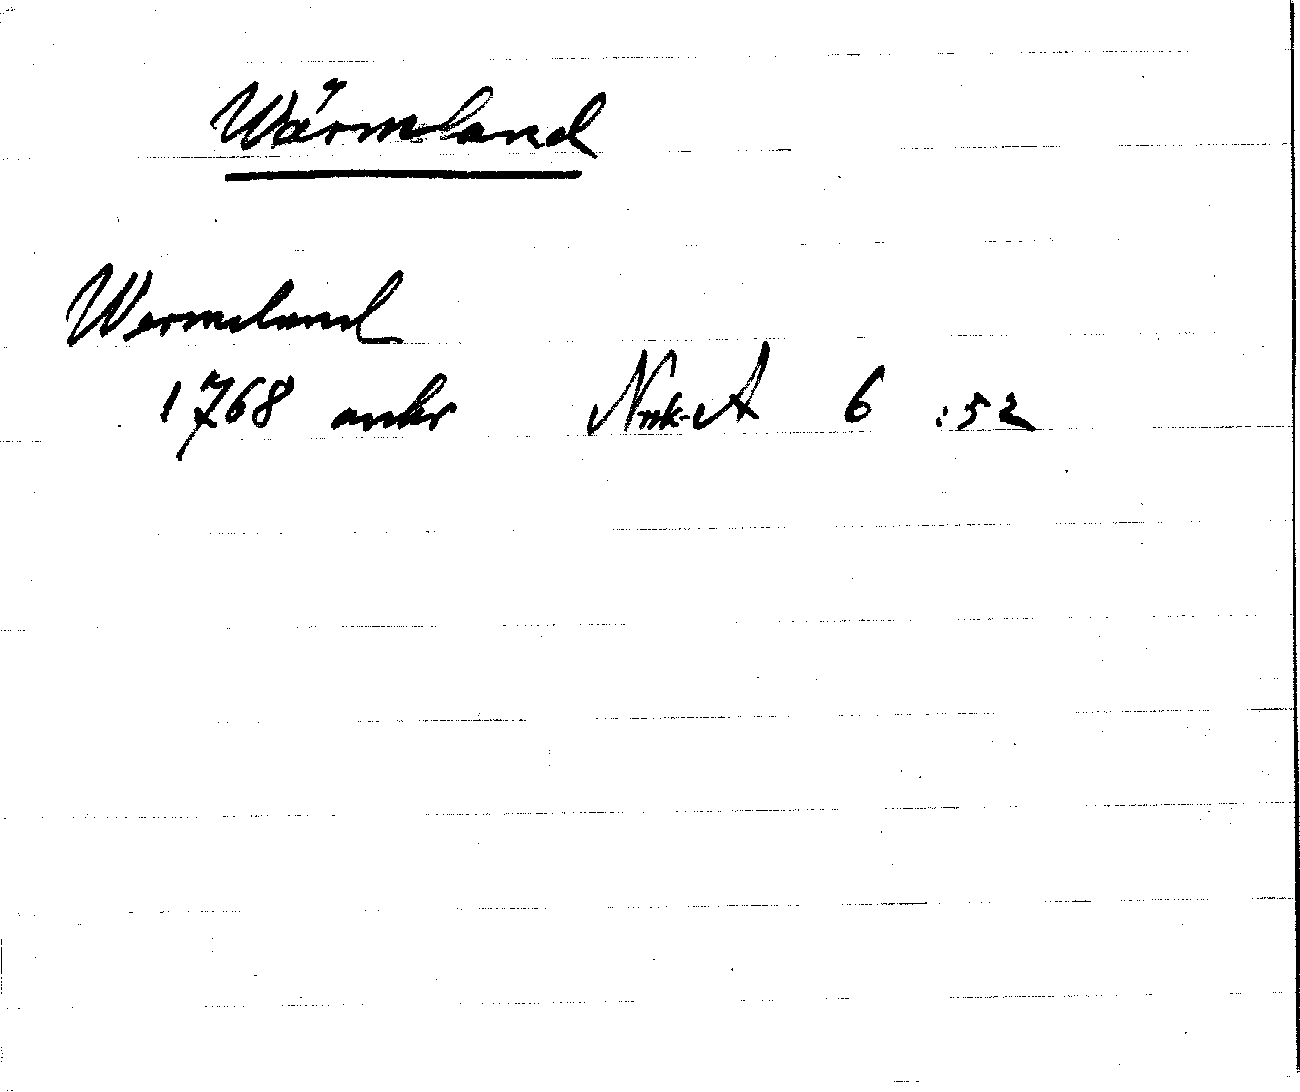 Wärmland
Wermeland
1768 ankr Nrrk-A 6 :52